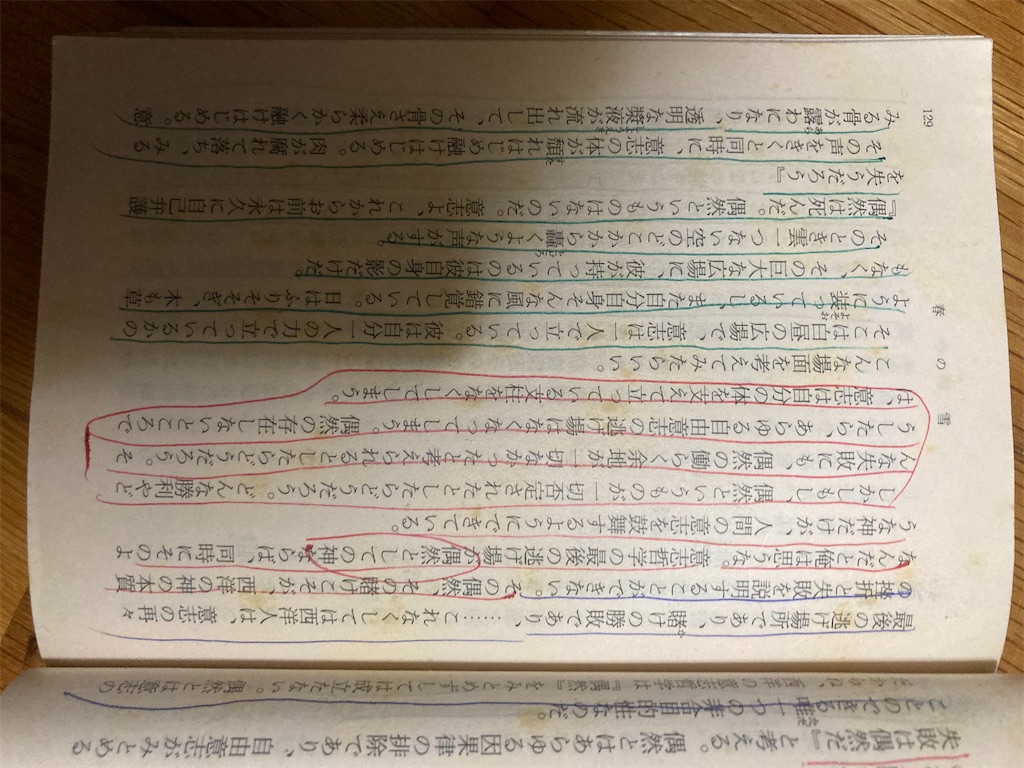 失敗は偶然だ』と考える。偶然とはあらゆる因果律の排除であり、自由意志がみとめる
ことのできる唯一つの非合目的性なのだ。
だからね、西洋の意志哲学は『偶然』をみとめずしては成立たない。偶然とは意志の
129 春の雪
最後の逃げ場所であり、賭の勝敗であり、……これなくしては西洋人は、意志の再々
の挫折と失敗を説明することができない。その偶然、その賭けこそが、西洋の神の本質
なんだと俺は思うな。意志哲学の最後の逃げ場が偶然としての神ならば、同時にそのよ
うな神だけが、人間の意志を鼓舞するようにできている。
しかしもし、偶然というものが一切否定されたとしたらどうだろう。どんな勝利やど
んな失敗にも、偶然の働らく余地が一切なかったと考えられるとしたらどうだろう。そ
うしたら、あらゆる自由意志の逃げ場はなくなってしまう。偶然の存在しないところで
は、意志は自分の体を支えて立っている支柱をなくしてしまう。
こんな場面を考えてみたらいい。
そこは白昼の広場で、意志は一人で立っている。彼は自分一人の力で立っているかの
ように装っているし、また自分自身そんな風に錯覚している。日はふりそそぎ、木も草
もなく、その巨大な広場に、彼が持っているのは彼自身の影だけだ。
そのとき雲一つない空のどこかから轟くような声がする。
『偶然は死んだ。偶然というものはないのだ。意志よ、これからお前は永久に自己弁護
を失うだろう』
その声をきくと同時に、意志の体が頽れはじめ融けはじめる。肉が腐れて落ち、みる
みる骨が露わになり、透明な漿液が流れ出して、その骨さえ柔らかく融けはじめる。意